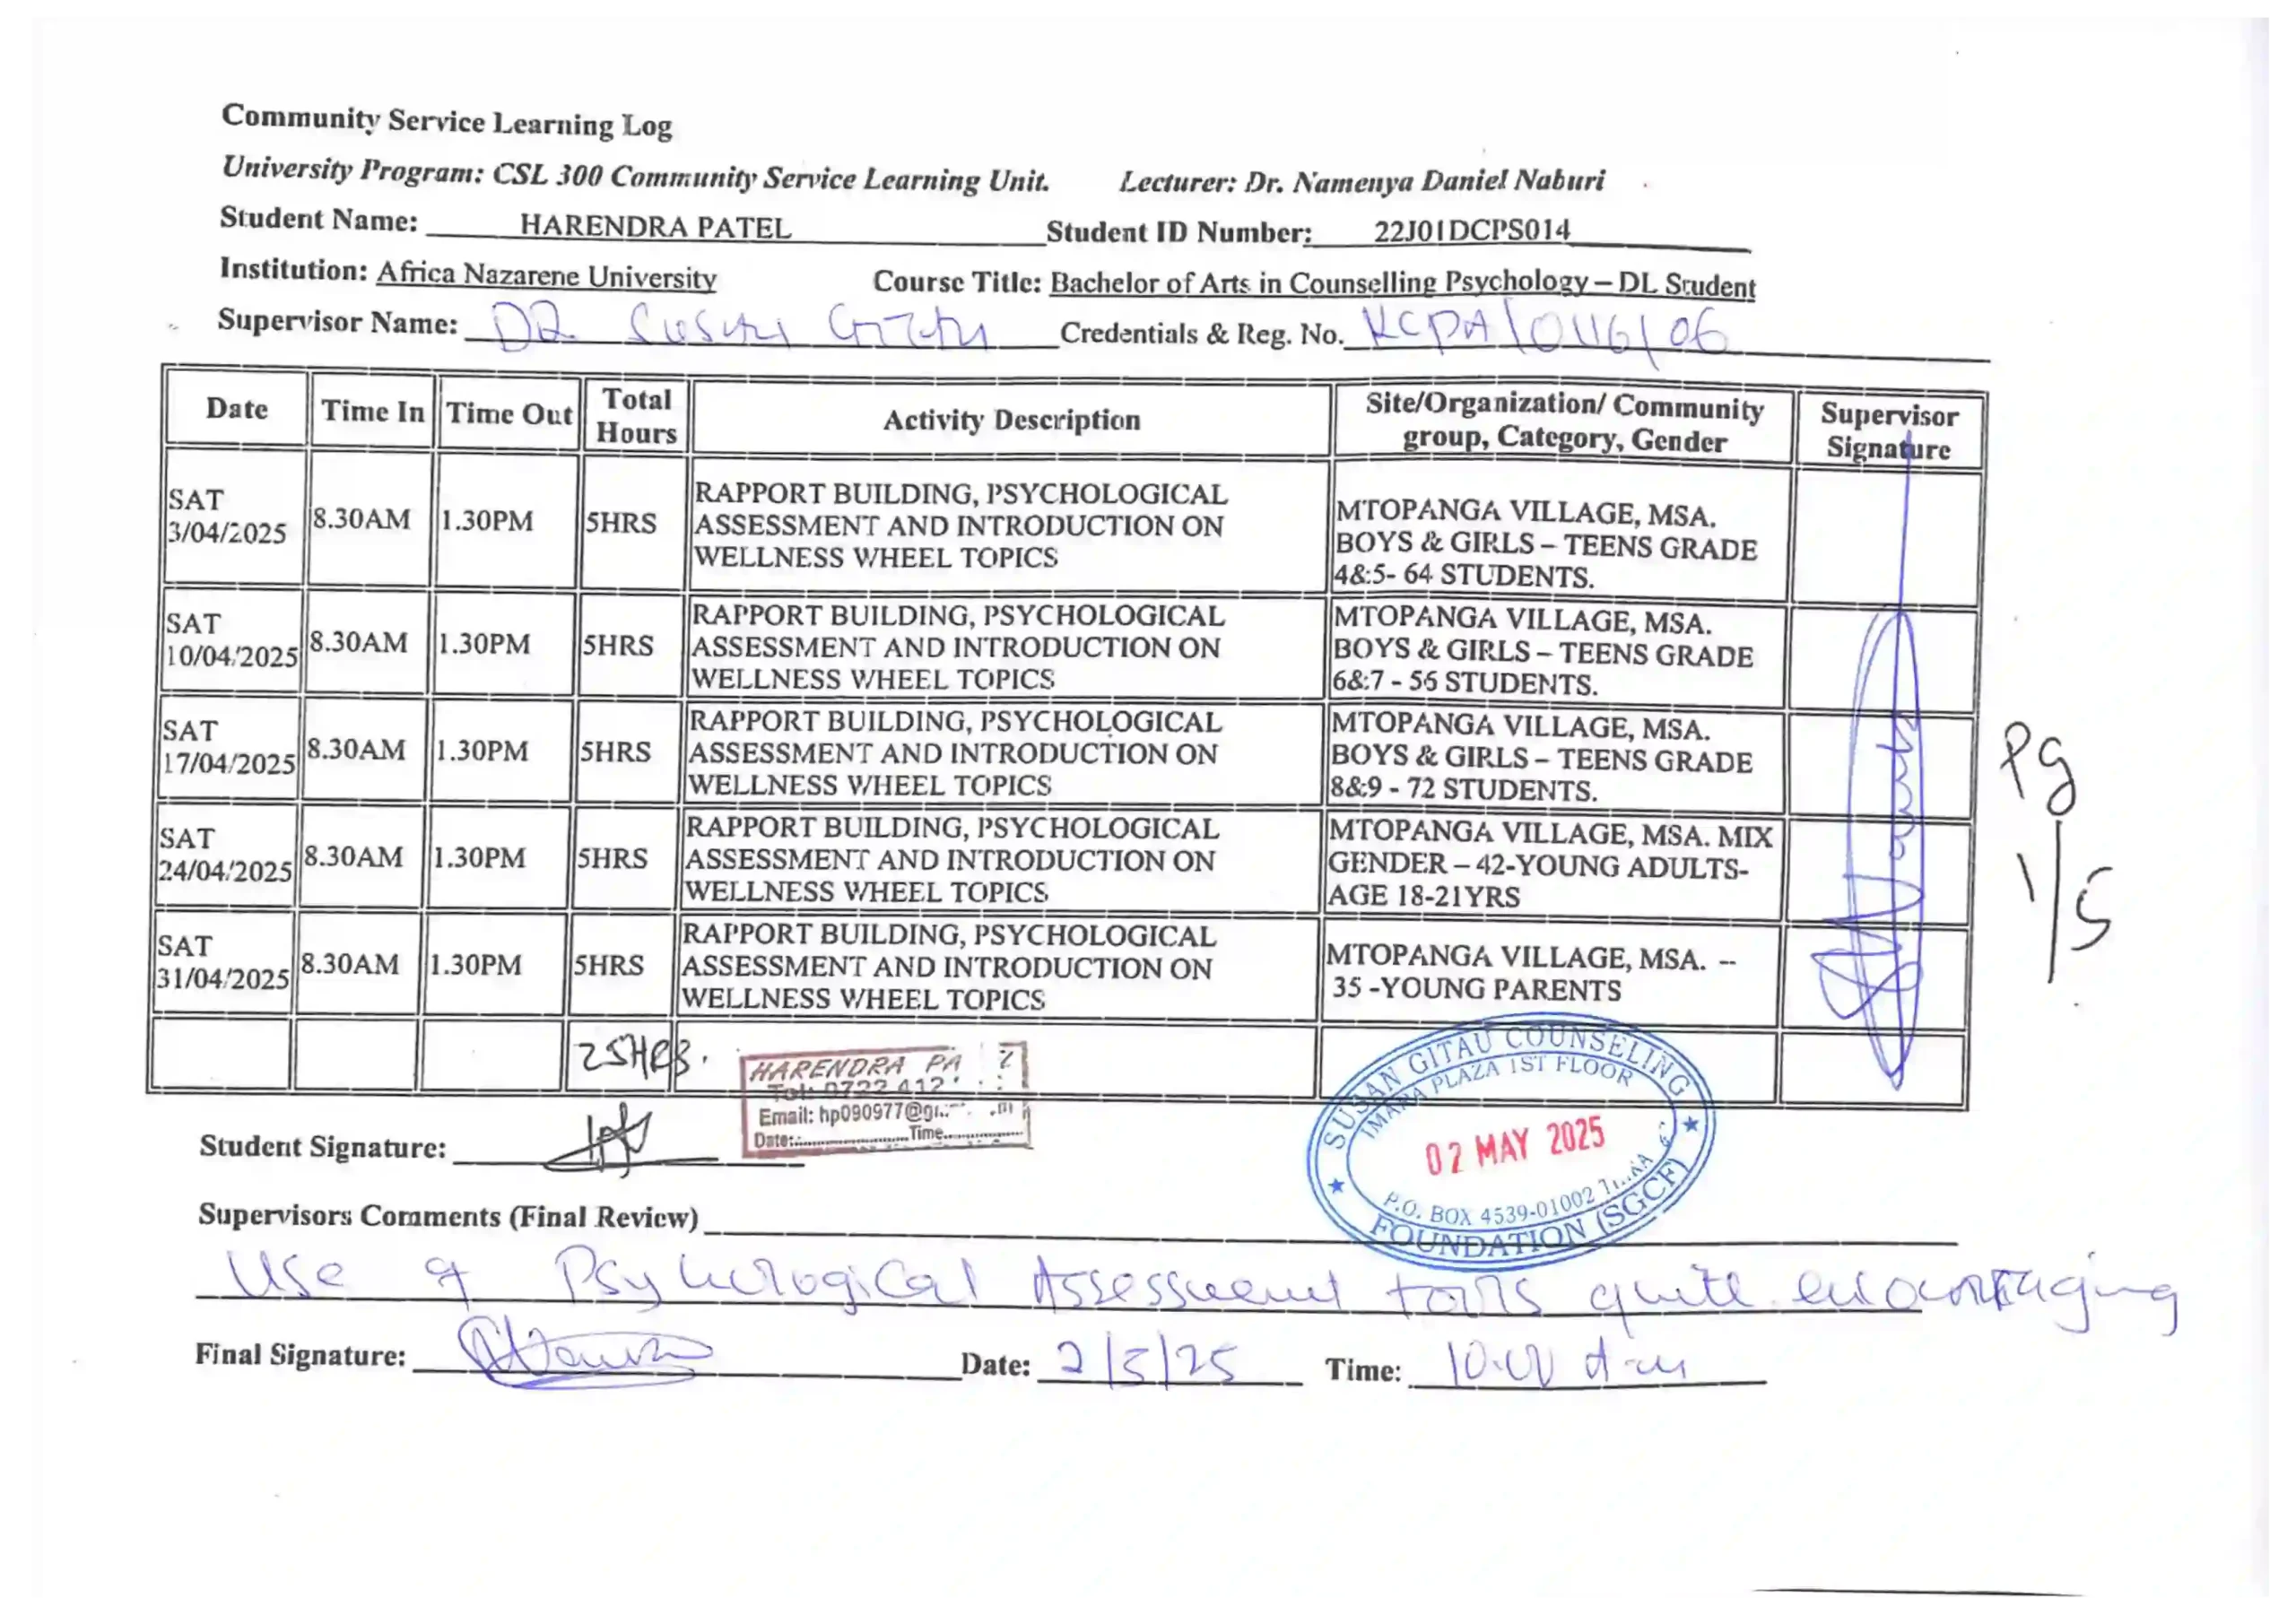 Community Service Learning Log
University Program: CSL 300 Community Service Learning Unit. Lecturer: Dr. Namenya Daniel Naburi
Student Name: HARENDRA PATEL Student ID Number: 22J01DCPS014
Institution: Africa Nazarene University Course Title: Bachelor of Arts in Counselling Psychology – DL Student
Supervisor Name: DR Susan Gitau Credentials & Reg. No. KCPA/0116/06
Date Time In Time Out Total Hours Activity Description Site/Organization/ Community group, Category, Gender Supervisor Signature
SAT 3/04/2025 8.30AM 1.30PM 5HRS RAPPORT BUILDING, PSYCHOLOGICAL ASSESSMENT AND INTRODUCTION ON WELLNESS WHEEL TOPICS MTOPANGA VILLAGE, MSA. BOYS & GIRLS – TEENS GRADE 4&5- 64 STUDENTS.
SAT 10/04/2025 8.30AM 1.30PM 5HRS RAPPORT BUILDING, PSYCHOLOGICAL ASSESSMENT AND INTRODUCTION ON WELLNESS WHEEL TOPICS MTOPANGA VILLAGE, MSA. BOYS & GIRLS – TEENS GRADE 6&7 - 56 STUDENTS.
SAT 17/04/2025 8.30AM 1.30PM 5HRS RAPPORT BUILDING, PSYCHOLOGICAL ASSESSMENT AND INTRODUCTION ON WELLNESS WHEEL TOPICS MTOPANGA VILLAGE, MSA. BOYS & GIRLS – TEENS GRADE 8&9 - 72 STUDENTS.
SAT 24/04/2025 8.30AM 1.30PM 5HRS RAPPORT BUILDING, PSYCHOLOGICAL ASSESSMENT AND INTRODUCTION ON WELLNESS WHEEL TOPICS MTOPANGA VILLAGE, MSA. MIX GENDER – 42-YOUNG ADULTS- AGE 18-21YRS
SAT 31/04/2025 8.30AM 1.30PM 5HRS RAPPORT BUILDING, PSYCHOLOGICAL ASSESSMENT AND INTRODUCTION ON WELLNESS WHEEL TOPICS MTOPANGA VILLAGE, MSA. – 35 -YOUNG PARENTS
Pg 1/5
25HRS.
HARENDRA PA
Tel: 0722 412
Email: hp090977@
Date: Time
SUSAN GITAU COUNSELING
IMARA PLAZA 1ST FLOOR
02 MAY 2025
P.O. BOX 4539-01002
FOUNDATION (SGCF)
Student Signature:
Supervisors Comments (Final Review)
Use of Psychological Assessment tools quite encouraging
Final Signature: Date: 2/5/25 Time: 10.00 Am